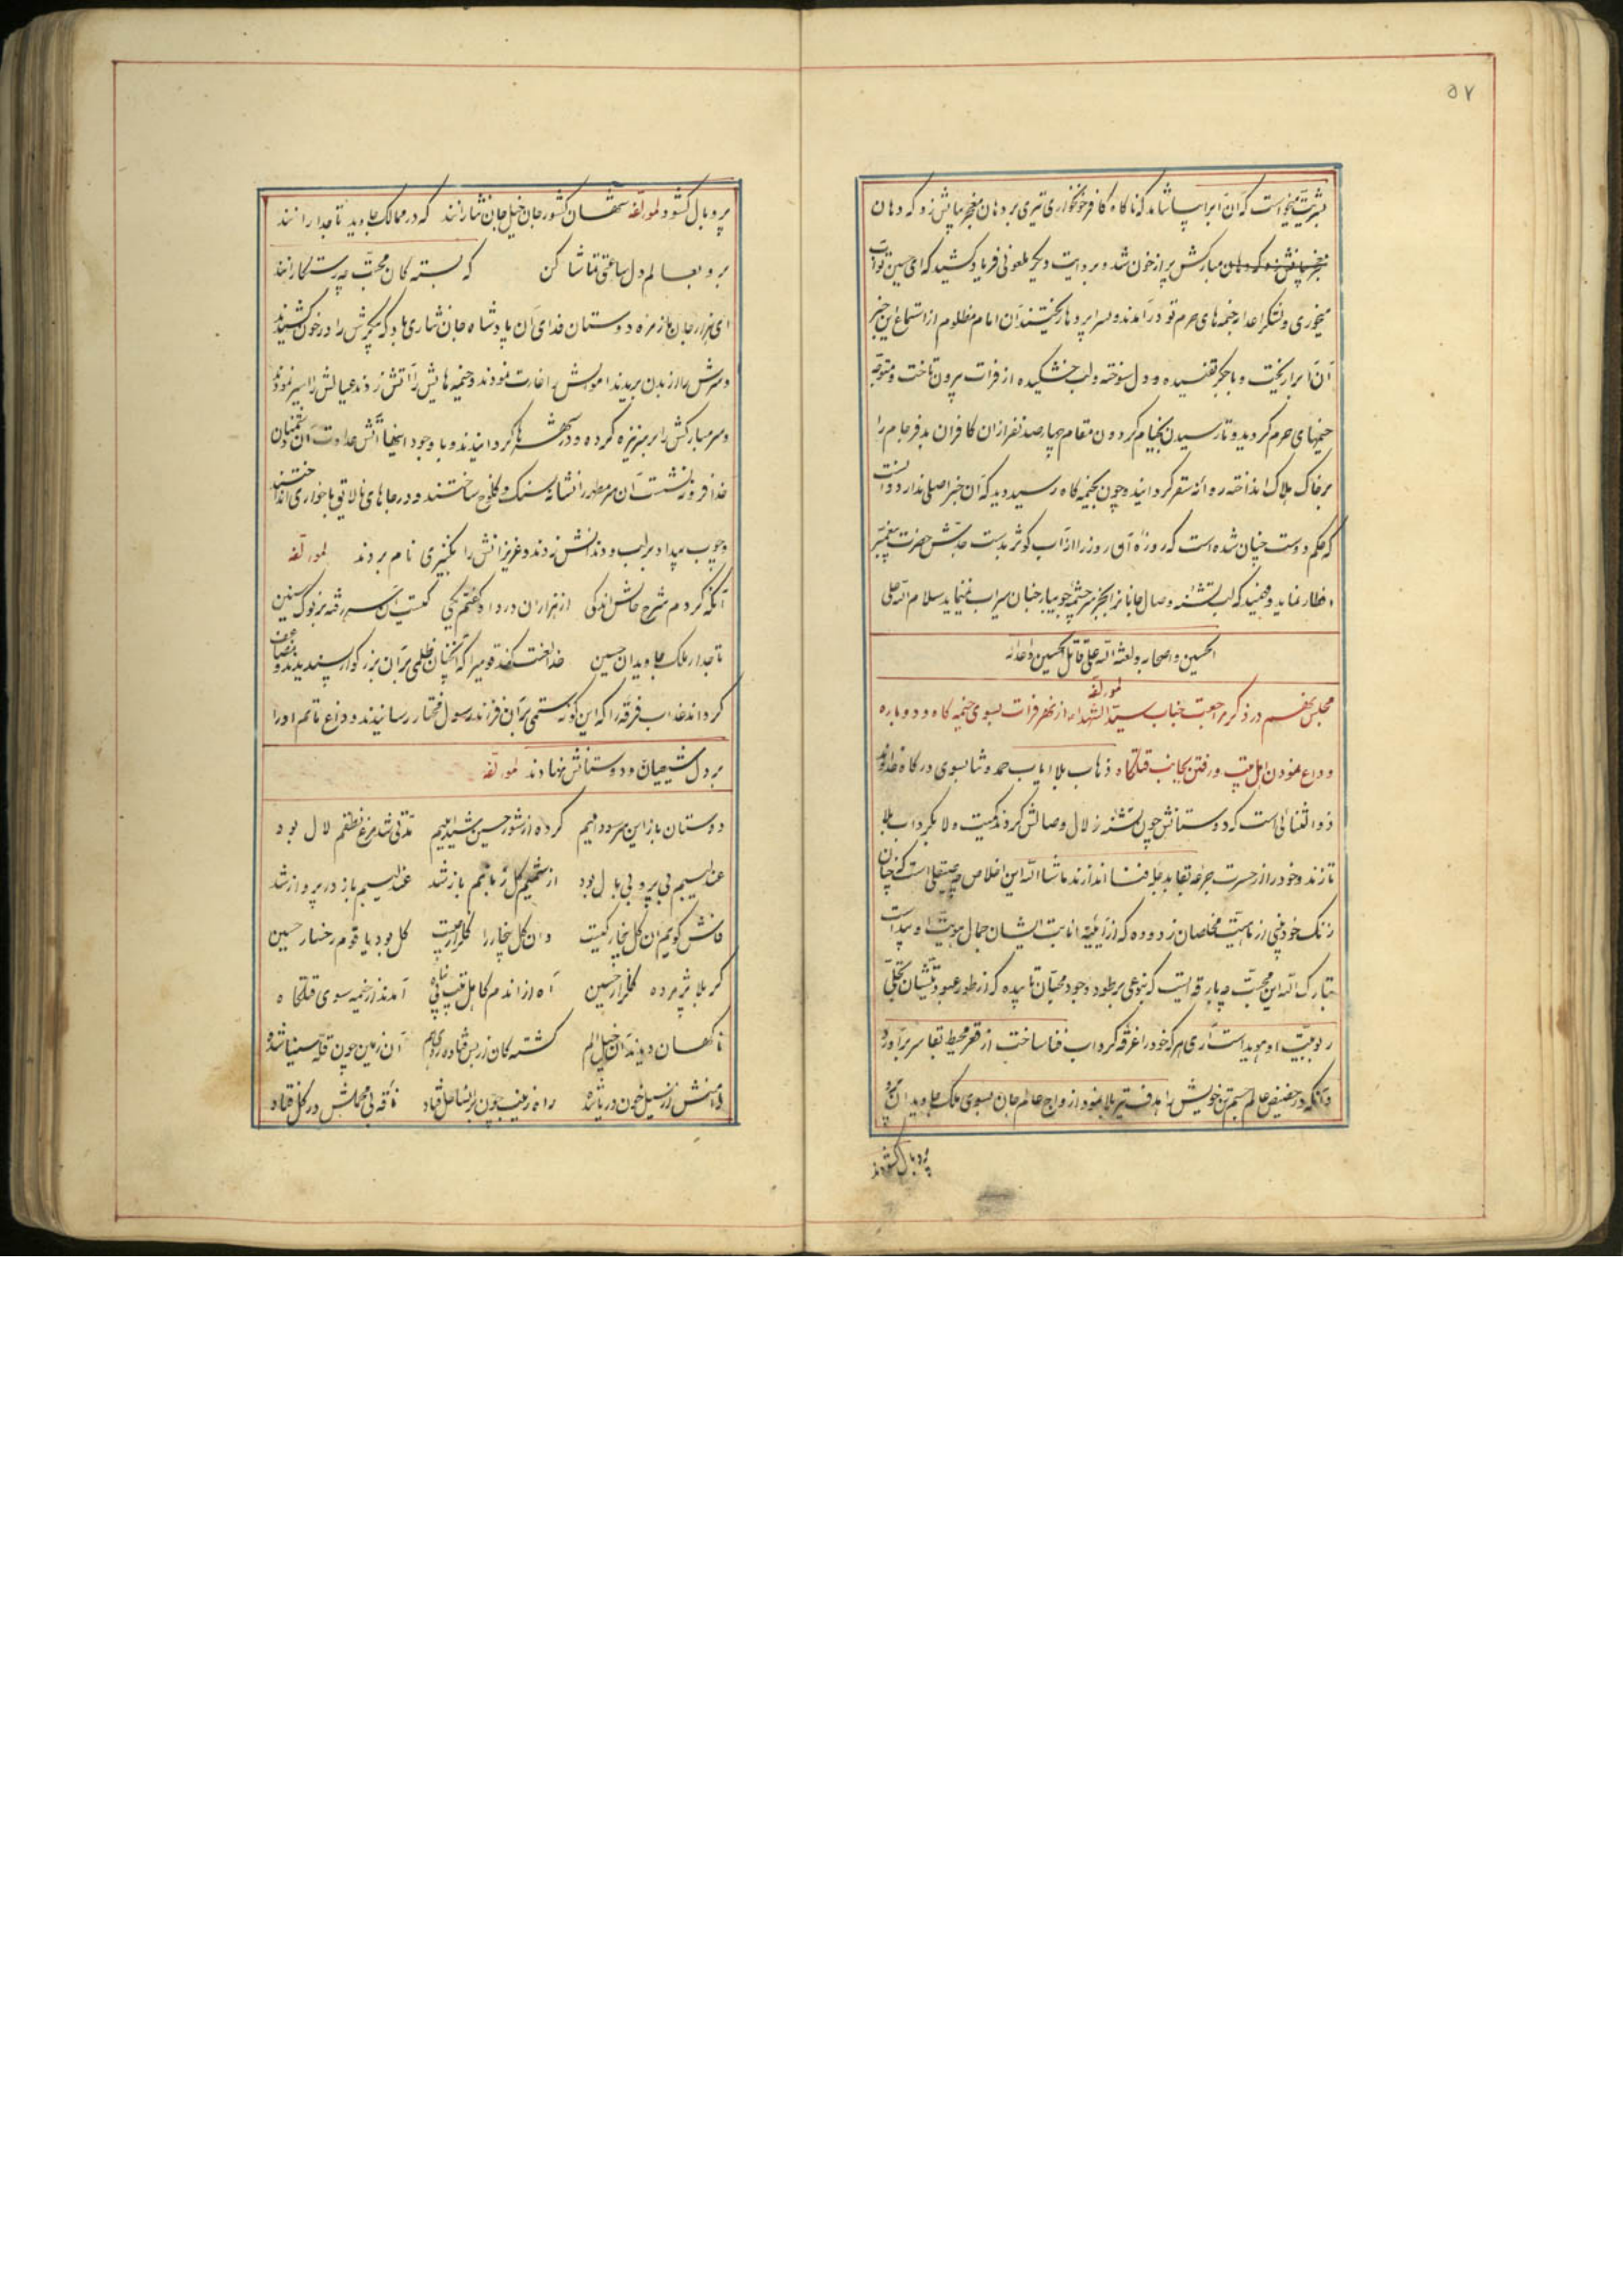 ۵۷
بشریت میخواست که آن آبرا بیاشامد که ناکاه کافر خونخواری تیری بر دهان معجز بیانش زد که دهان
مبارکش پر از خون شد و بروایت دیکر ملعونی فریاد کشید که ای حسین تو آب
میخوری و لشکر اعدا بخیمه های حرم تو درآمدند و سراپردها ریختند آن امام مظلوم از استماع این خبر
آن آبرا ریخت و با جکر تفسیده و دل سوخته و لب خشکیده از فرات بیرون تاخت و متوجه
خیمهای حرم کردید و تا رسیدن بخیام کردون مقام چهارصد نفر از ان کافران بدفرجام را
بر خاک هلاک انداخته روانه سقر کردانید و چون بخیمه کاه رسید دید که آن خبر اصلی ندارد دانست
که حکم دوست چنان شده است که روزه آن روز را از آب کوثر بدست جدش حضرت پیغمبر
افطار نماید و فهمید که لب تشنه وصال جانانرا بجز سرچشمه جویبار جنان سیراب نمینماید سلام الله علی
الحسین و اصحابه و لعنة الله علی قاتل الحسین و اعدائه
لمؤلفه
مجلس نهم در ذکر مراجعت جناب سید الشهداء از نهر فرات بسوی خیمه کاه و دوباره
وداع نمودن اهل بیت و رفتن بجانب قتلکاه ذهاب بلا ایاب حمد و ثنا بسوی درکاه خداوند
ذو الثنائی است که دوستانش چون تشنه زلال وصالش کردند کمیت ولا بکرداب بلا
تازند و خود را از حسرت جرعه بقا بدجله فنا اندازند ما شاء الله این اخلاص چه صیقلی است که چنان
زنک خودبینی از ماهیت مخلصان زدوده که از آیینه انانیت ایشان جمال هویت او پیداست
تبارک الله این محبت چه بارقه ایست که بنوعی بر طور وجود محبان تابیده که از طور عبودیتشان تجلی
ربوبیت او هویداست آری هر که خود را غرقه کرداب فنا ساخت از قعر محیط بقا سر برآورد
و آنکه در حضیض عالم جسم تن خویش را هدف تیر بلا نمود از اوج عالم جان بسوی ملک جاویدان پر
پر و بال کشودند
پر و بال کشود لمؤلفه شهان کشور جان خیل جان نثارانند که در ممالک جاوید تاجدارانند
برو بعالم دل ساعتی تماشا کن که بسته کان محبت چه رستکارانند
ای هزار جان ما زمره دوستان فدای آن پادشاه جان نثاری باد که پیکرش را در خون کشیدند
و سرش را از بدن بریدند اموالش را غارت نمودند و خیمه هایش را آتش زدند عیالش را اسیر نمودند
و سر مبارکش را بر سر نیزه کرده و در شهرها کردانیدند و با وجود اینها آتش عداوت آن دشمنان
خدا فرو ننشست آن سر مطهر را نشانه سنک و کلوخ ساختند و در جاهای نالایق با خواری انداختند
و چوب بیداد بر لب و دندانش زدند و عزیزانش را بکنیزی نام بردند لمؤلفه
آنکه کردم شرح حالش اندکی از هزاران درد او کفتم یکی کیست آن سر رفته بر نوک سنین
تاجدار ملک جاویدان حسین خدا لعنت کند قومیرا که آنچنان ظلمی بر آن بزرکوار پسندیدند و مضاعف
کرداند عذاب فرقه را که این کونه ستمی بر آن فرزند رسول مختار رسانیدند و داغ ماتم او را
بر دل شیعیان و دوستانش نهادند لمؤلفه
دوستان باز این سر سودائیم کرده از شور حسین شیدائیم مدتی شد مرغ نطقم لال بود
عندلیبم بی پر و بی بال بود از شمیم کل زبانم باز شد عندلیبم باز در پرواز شد
فاش کویم آن کل بیخار کیست وان کل بیخار را کلزار چیست کل بود یا قوم رخسار حسین
کربلا پژمرده کلزار حسین آه از اندم کاهل بیت بی پناه آمدند از خیمه سوی قتلکاه
ناکهان دیدند آن خیل الم کشته کان از بس فتاده روی هم آن زمین چون قله سینا شده
دامنش از سیل خون دریا شده راه زینب چون بر آن ساحل فتاد ناقه بی محملش در کل فتاد